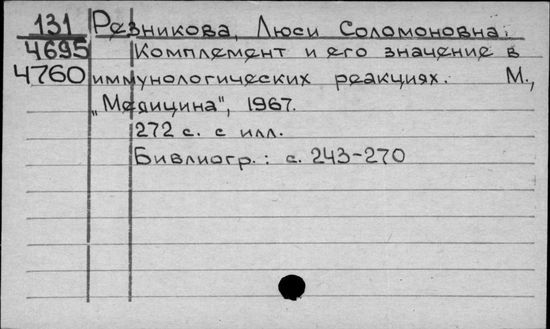 131 Резникова, Люси Соломоновна.
4695 Комплемент и его значение в
4760 иммунологических реакциях. М.,
"Медицина", 1967.
272 с. с илл.
Библиогр.: с. 243-270